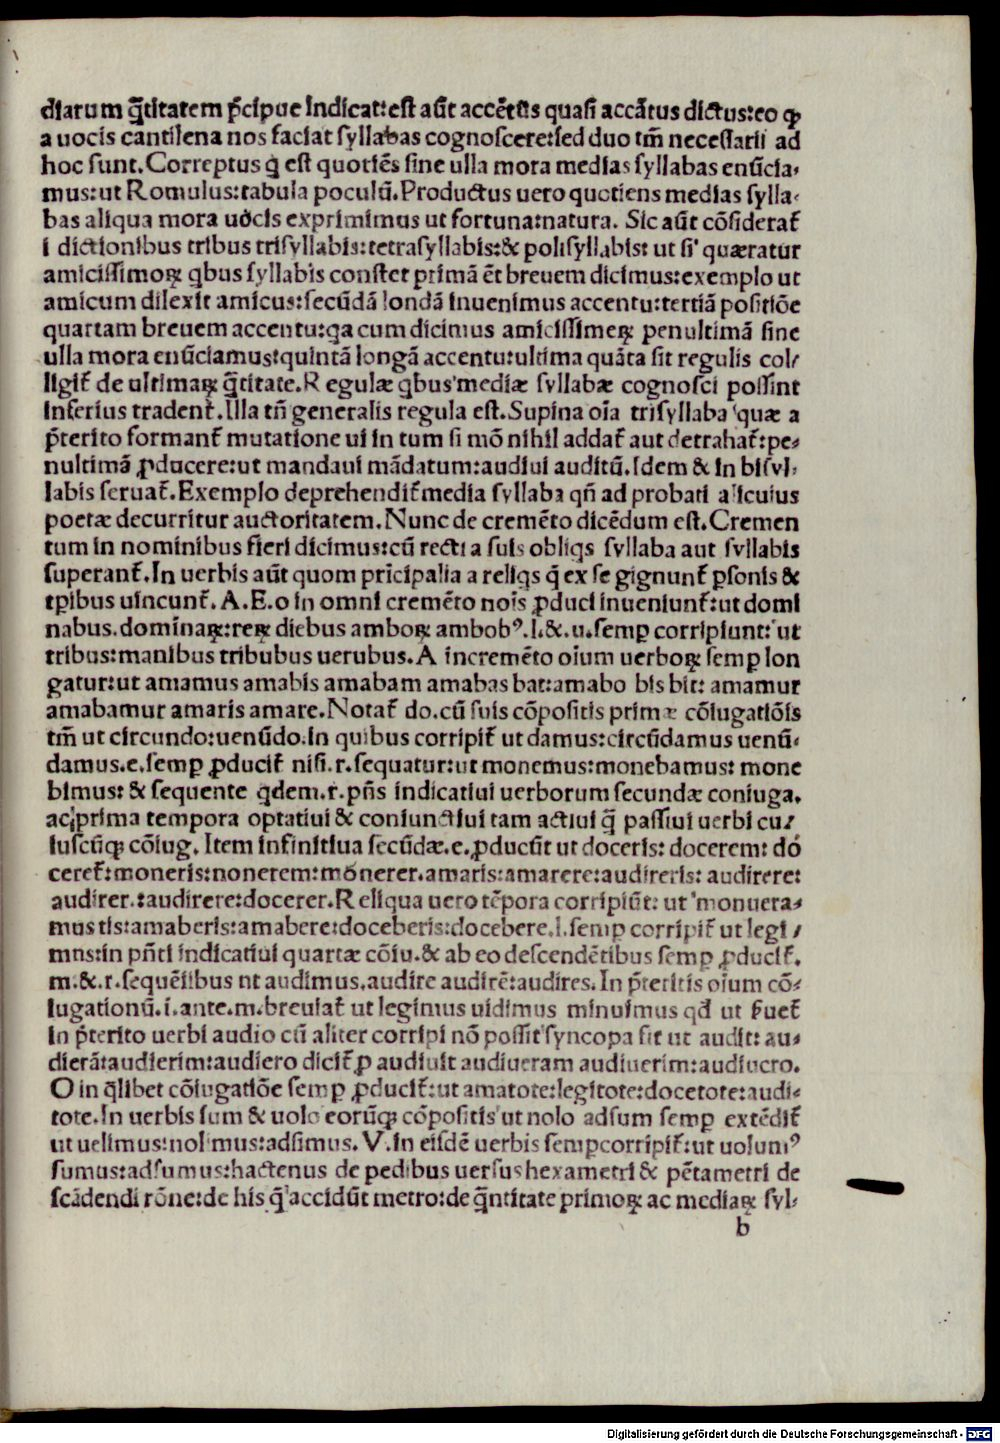 diarum q̃titatem p̃cipue indicat:est aũt accẽtus quasi accãtus dictus:eo ꝙ
a uocis cantilena nos faciat syllabas cognoscere:sed duo tm̃ necessarii ad
hoc sunt.Correptus q̃ est quotiẽs sine ulla mora medias syllabas enũcia-
mus:ut Romulus:tabula poculũ.Productus uero quotiens medias sylla-
bas aliqua mora uocis exprimimus ut fortuna:natura. Sic aũt cõsiderat̃
i dictionibus tribus trisyllabis:tetrasyllabis:& polisyllabis: ut si quæratur
amicissimoꝝ qbus syllabis constet primã ẽt breuem dicimus:exemplo ut
amicum dilexit amicus:secũdã londã inuenimus accentu:tertiã positiõe
quartam breuem accentu:qa cum dicimus amicissimeꝝ penultimã sine
ulla mora enũciamus:quintã longã accentu:ultima quãta sit regulis col/
ligit̃ de ultimaꝝ q̃titate.Regulæ qbus mediæ syllabæ cognosci possint
inferius tradent̃.Illa tñ generalis regula est.Supina oĩa trisyllaba quæ a
p̃terito formant̃ mutatione ui in tum si mõ nihil addat̃ aut detrahat̃:pe-
nultimã ꝓducere:ut mandaui mãdatum:audiui auditũ.Idem & in bisyl-
labis seruat̃.Exemplo deprehendit̃ media syllaba qñ ad probati alicuius
poetæ decurritur auctoritatem.Nunc de cremẽto dicẽdum est.Cremen
tum in nominibus fieri dicimus:cũ recti a suis obliqs syllaba aut syllabis
superant̃.In uerbis aũt quom pricipalia a reliqs q̃ ex se gignunt̃ ꝑsonis &
tꝑibus uincunt̃. A.E.o in omni cremẽto nois ꝓduci inueniunt̃:ut domi
nabus.dominaꝝ:reꝝ diebus amboꝝ ambobꝰ.I.&.u.semꝑ corripiunt: ut
tribus:manibus tribubus uerubus.A incremẽto oium uerboꝝ semꝑ lon
gatur:ut amamus amabis amabam amabas bat:amabo bis bit: amamur
amabamur amaris amare.Notat̃ do.cũ suis cõpositis primæ cõiugatiõis
tm̃ ut circundo:uenũdo.in quibus corripit̃ ut damus:circũdamus uenũ-
damus.e.semꝑ ꝓducit̃ nisi.r.sequatur:ut monemus:monebamus: mone
bimus: & sequente qdem.r.pñs indicatiui uerborum secundæ coniuga.
ac prima tempora optatiui & coniunctiui tam actiui q̃ passiui uerbi cu/
iuscũqꝫ cõiug. Item infinitiua secũdæ.e.ꝓducũt ut doceris: docerem: do
ceret̃:moneris:nonerem:monerer.amaris:amarere:audireris: audirere:
audirer.:audirere:docerer.Reliqua uero tẽpora corripiũt: ut monuera-
mus tis:amaberis:amabere:doceberis:docebere.I.semꝑ corripit̃ ut legi /
mns:in pñti indicatiui quartæ cõiu.& ab eo descendẽtibus semꝑ ꝓducit̃.
m.&.r.sequẽtibus nt audimus.audire audirẽ:audires.In p̃teritis oium cõ-
iugationũ.i.ante.m.breuiat̃ ut legimus uidimus minuimus qđ ut fuet̃
in p̃terito uerbi audio cũ aliter corripi nõ possit syncopa fit ut audit: au-
dierã:audierim:audiero dicit̃ ꝓ audiuit audiueram audiuerim:audiuero.
O in q̃libet cõiugatiõe semꝑ ꝓducit̃:ut amatote:legitote:docetote:audi-
tote.In uerbis sum & uolo eorũqꝫ cõpositis ut nolo adsum semꝑ extẽdit̃
ut uelimus:nolimus:adsimus. V.in eisdẽ uerbis semꝑcorripit̃:ut uolumꝰ
sumus:adsumus:hactenus de pedibus uersus hexametri & pẽtametri de
scãdendi rõne:de his q̃ accidũt metro:de q̃ntitate primoꝝ ac mediaꝝ syl-
b
Digitalisierung gefördert durch die Deutsche Forschungsgemeinschaft - DFG